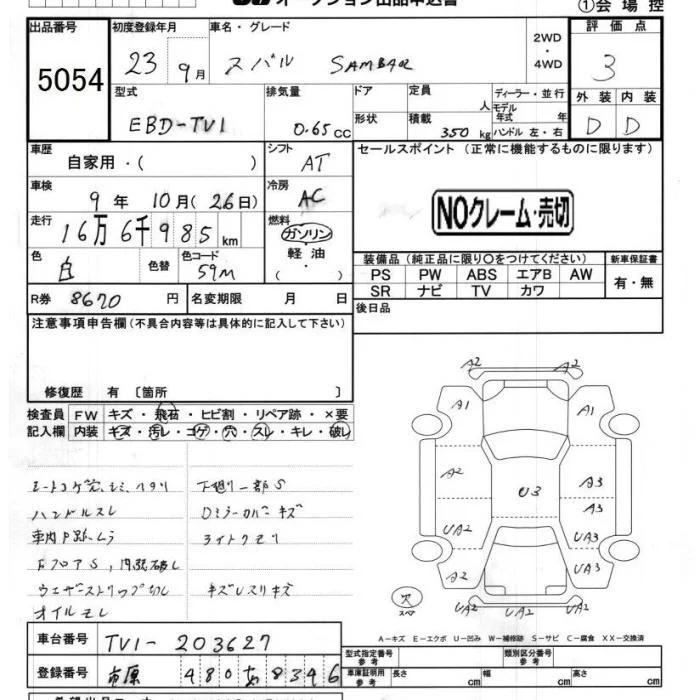 オークション出品申込書
①会場控
出品番号
5054
初度登録年月
23年9月
車名・グレード
スバル SAMBAR
2WD
・
4WD
評価点
3
外装 内装
D D
型式
EBD-TV1
排気量
0.65cc
ドア
形状
定員
人
積載
350kg
ディーラー・並行
モデル年式 年
ハンドル 左・右
車歴
自家用・( )
シフト
AT
セールスポイント (正常に機能するものに限ります)
NOクレーム・売切
車検
9年10月(26日)
冷房
AC
走行
16万6千985km
燃料
ガソリン
・
軽油
・
( )
色
白
色替
色コード
59M
装備品(純正品に限り〇をつけてください)
新車保証書
PS PW ABS エアB AW
SR ナビ TV カワ
有・無
R券 8670円
名変期限 月 日
後日品
注意事項申告欄(不具合内容等は具体的に記入して下さい)
修復歴 有 〔箇所 〕
検査員
記入欄
FW キズ・飛石・ヒビ割・リペア跡・×要
内装 キズ・汚レ・コゲ・穴・スレ・キレ・破レ
シートコゲ穴、シミ、ヘタリ
下廻り一部S
ハンドルスレ
Dミラーカバーキズ
ライトクモリ
ウエザーストリップ切レ
オイルモレ
A2 A2
A1 A1
A2 U3 A3
A3
UA2 UA3
A2 UA3
穴
スペア
UA2 UA2 A2
A-キズ E-エクボ U-凹み W-補修跡 S-サビ C-腐食 XX-交換済
車台番号
TV1-203627
型式指定番号
参考
類別区分番号
参考
登録番号
市原 480 あ 8346
車庫証明用
参考
長さ cm
幅 cm
高さ cm